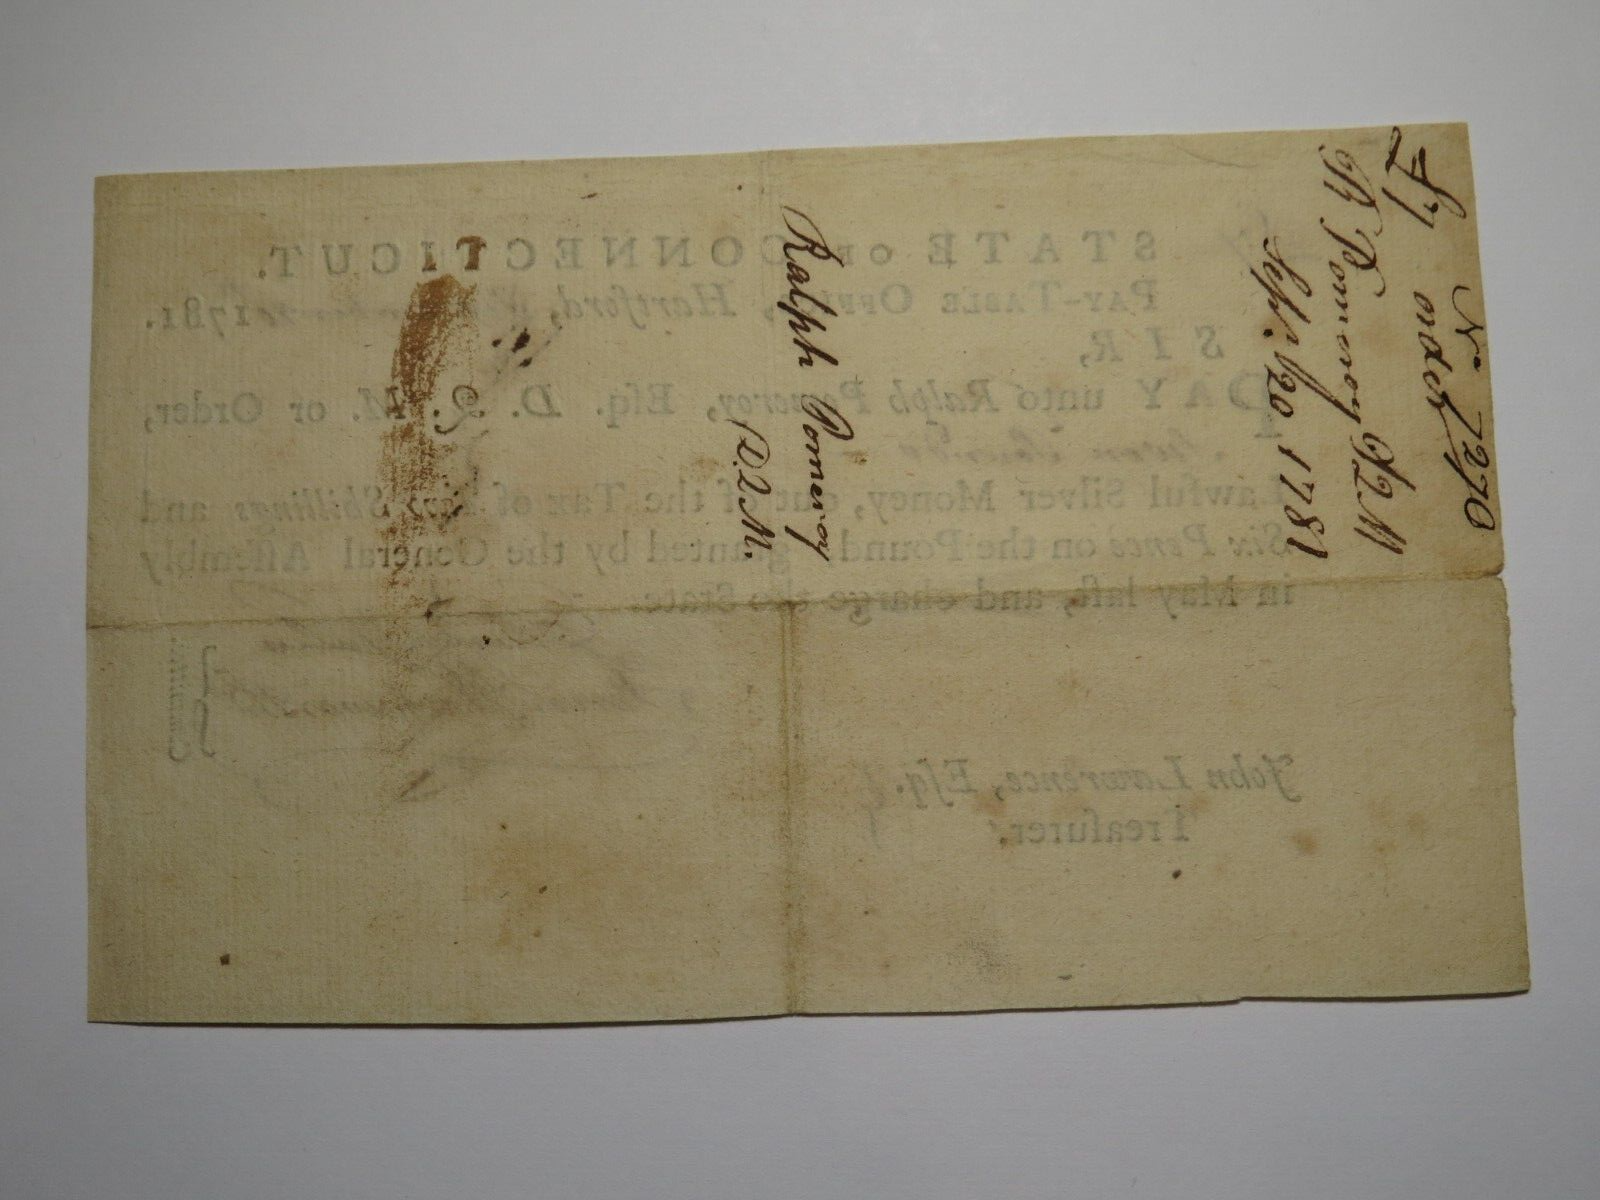 No 7270
order
R Pomeroy DQM
Sept. 20 1781
Ralph Pomeroy
D.Q.M.
STATE OF CONNECTICUT.
PAY-TABLE OFFICE, Hartford, 1781.
SIR,
PAY unto Ralph Pomeroy, Esq. D. Q. M. or Order,
Lawful Silver Money, out of the Tax of Two Shillings and
Six Pence on the Pound, granted by the General Assembly
in May last, and charge the State.
John Lawrence, Esq.
Treasurer.